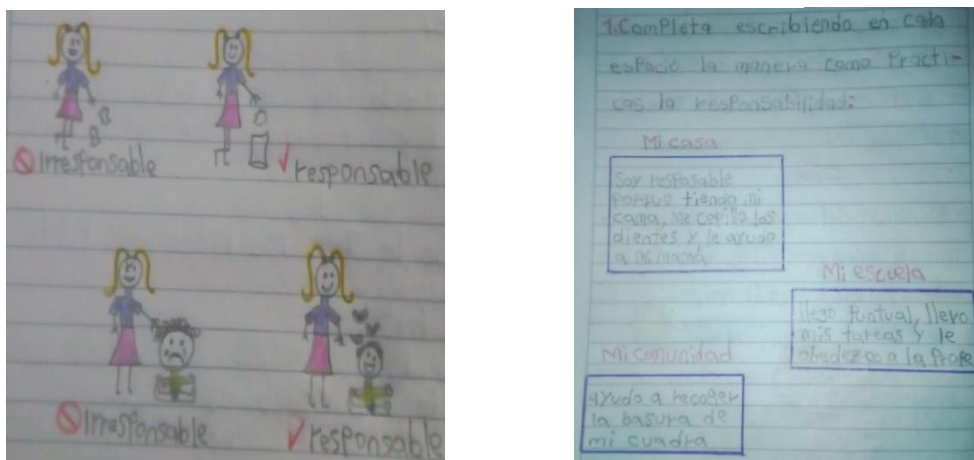 irresponsable
responsable
irresponsable
responsable
1.Completa escribiendo en cada
espacio la manera como Practi-
cas la responsabilidad:
Mi casa
Soy resposable
Porque tiendo mi
cama, me cepillo los
dientes y le ayudo
a mi mamá
Mi escuela
llego Puntual, llevo
mis tareas y le
obedezco a la Profe
Mi comunidad
ayudo a recoger
la basura de
mi cuadra